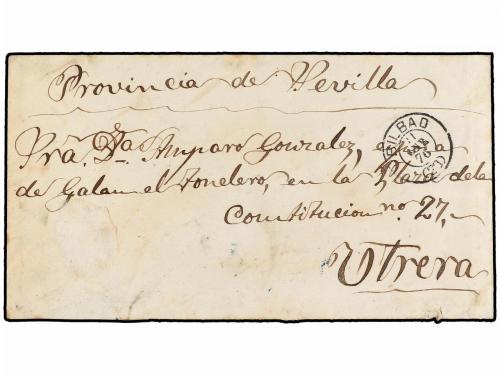 Provincia de Sevilla
Sra. Dña. Amparo Gonzalez,
de Galan el Tonelero, en la Plaza de la
Constitucion no. 27,
Utrera
BILBAO
11
76